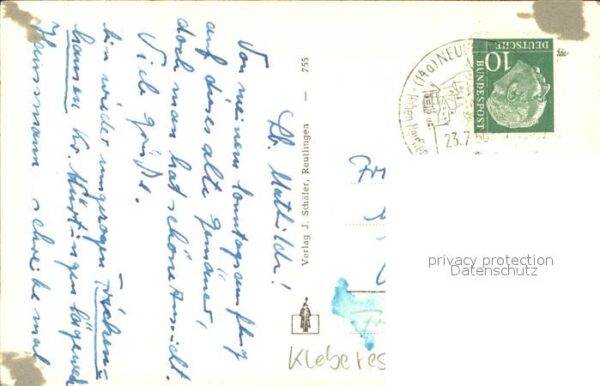 Lb. Mathilde!
Von meinem Sonntagsausflug
auf dieses alte Gemäuer,
doch man hat schöne Aussicht.
Viele Grüße.
bin wieder umgezogen Tischen-
hausen Kr. Nürtingen
Hausmann schreibe mal
Verlag J. Schäfer, Reutlingen — 755
(14a) NEU
23.7.
10
DEUTSCHE
BUNDESPOST
Fr
privacy protection
Datenschutz
Kleberes